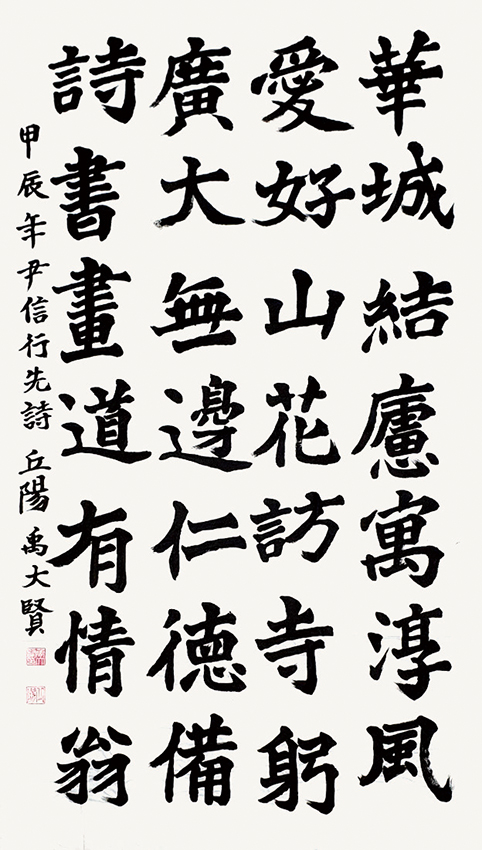 華城結廬寓淳風
愛好山花訪寺躬
廣大無邊仁德備
詩書畫道有情翁
甲辰年尹信行先詩 丘陽 禹大賢